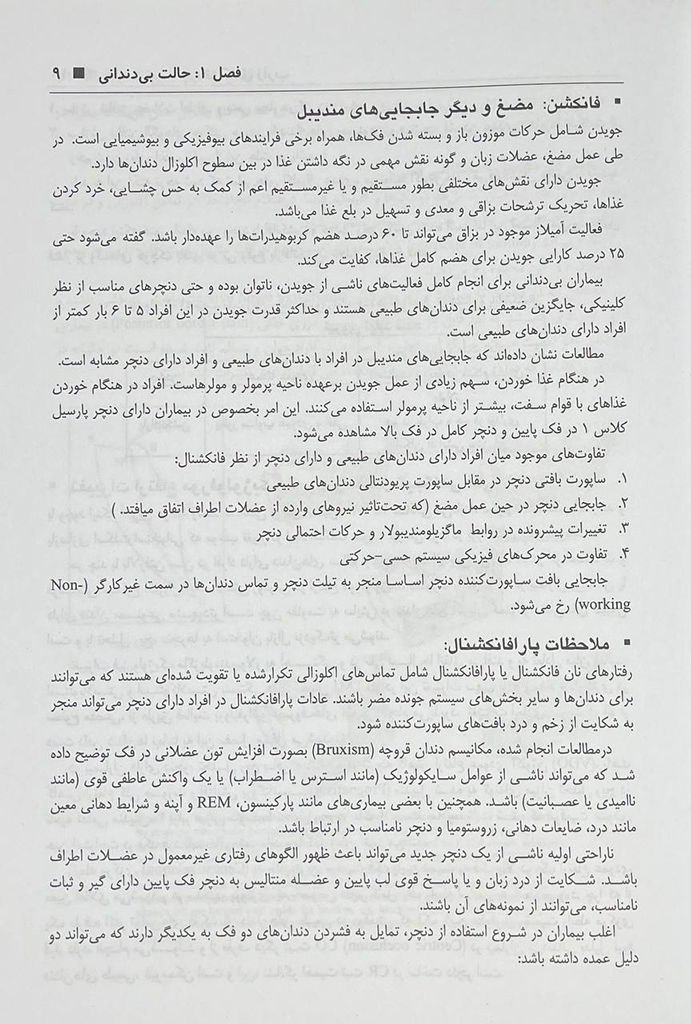 فصل ۱: حالت بی‌دندانی ■ ۹
▪ فانکشن: مضغ و دیگر جابجایی‌های مندیبل
جویدن شامل حرکات موزون باز و بسته شدن فک‌ها، همراه برخی فرایندهای بیوفیزیکی و بیوشیمیایی است. در
طی عمل مضغ، عضلات زبان و گونه نقش مهمی در نگه داشتن غذا در بین سطوح اکلوزال دندان‌ها دارد.
جویدن دارای نقش‌های مختلفی بطور مستقیم و یا غیرمستقیم اعم از کمک به حس چشایی، خرد کردن
غذاها، تحریک ترشحات بزاقی و معدی و تسهیل در بلع غذا می‌باشد.
فعالیت آمیلاز موجود در بزاق می‌تواند تا ۶۰ درصد هضم کربوهیدرات‌ها را عهده‌دار باشد. گفته می‌شود حتی
۲۵ درصد کارایی جویدن برای هضم کامل غذاها، کفایت می‌کند.
بیماران بی‌دندانی برای انجام کامل فعالیت‌های ناشی از جویدن، ناتوان بوده و حتی دنچرهای مناسب از نظر
کلینیکی، جایگزین ضعیفی برای دندان‌های طبیعی هستند و حداکثر قدرت جویدن در این افراد ۵ تا ۶ بار کمتر از
افراد دارای دندان‌های طبیعی است.
مطالعات نشان داده‌اند که جابجایی‌های مندیبل در افراد با دندان‌های طبیعی و افراد دارای دنچر مشابه است.
در هنگام غذا خوردن، سهم زیادی از عمل جویدن برعهده ناحیه پرمولر و مولرهاست. افراد در هنگام خوردن
غذاهای با قوام سفت، بیشتر از ناحیه پرمولر استفاده می‌کنند. این امر بخصوص در بیماران دارای دنچر پارسیل
کلاس ۱ در فک پایین و دنچر کامل در فک بالا مشاهده می‌شود.
تفاوت‌های موجود میان افراد دارای دندان‌های طبیعی و دارای دنچر از نظر فانکشنال:
۱. ساپورت بافتی دنچر در مقابل ساپورت پریودنتالی دندان‌های طبیعی
۲. جابجایی دنچر در حین عمل مضغ (که تحت‌تاثیر نیروهای وارده از عضلات اطراف اتفاق میافتد. )
۳. تغییرات پیشرونده در روابط ماگزیلومندیبولار و حرکات احتمالی دنچر
۴. تفاوت در محرک‌های فیزیکی سیستم حسی-حرکتی
جابجایی بافت ساپورت‌کننده دنچر اساسا منجر به تیلت دنچر و تماس دندان‌ها در سمت غیرکارگر (Non-
working) رخ می‌شود.
▪ ملاحظات پارافانکشنال:
رفتارهای نان فانکشنال یا پارافانکشنال شامل تماس‌های اکلوزالی تکرارشده یا تقویت شده‌ای هستند که می‌توانند
برای دندان‌ها و سایر بخش‌های سیستم جونده مضر باشند. عادات پارافانکشنال در افراد دارای دنچر می‌تواند منجر
به شکایت از زخم و درد بافت‌های ساپورت‌کننده شود.
درمطالعات انجام شده، مکانیسم دندان قروچه (Bruxism) بصورت افزایش تون عضلانی در فک توضیح داده
شد که می‌تواند ناشی از عوامل سایکولوژیک (مانند استرس یا اضطراب) یا یک واکنش عاطفی قوی (مانند
ناامیدی یا عصبانیت) باشد. همچنین با بعضی بیماری‌های مانند پارکینسون، REM و آپنه و شرایط دهانی معین
مانند درد، ضایعات دهانی، زروستومیا و دنچر نامناسب در ارتباط باشد.
ناراحتی اولیه ناشی از یک دنچر جدید می‌تواند باعث ظهور الگوهای رفتاری غیرمعمول در عضلات اطراف
باشد. شکایت از درد زبان و یا پاسخ قوی لب پایین و عضله منتالیس به دنچر فک پایین دارای گیر و ثبات
نامناسب، می‌توانند از نمونه‌های آن باشند.
اغلب بیماران در شروع استفاده از دنچر، تمایل به فشردن دندان‌های دو فک به یکدیگر دارند که می‌تواند دو
دلیل عمده داشته باشد: